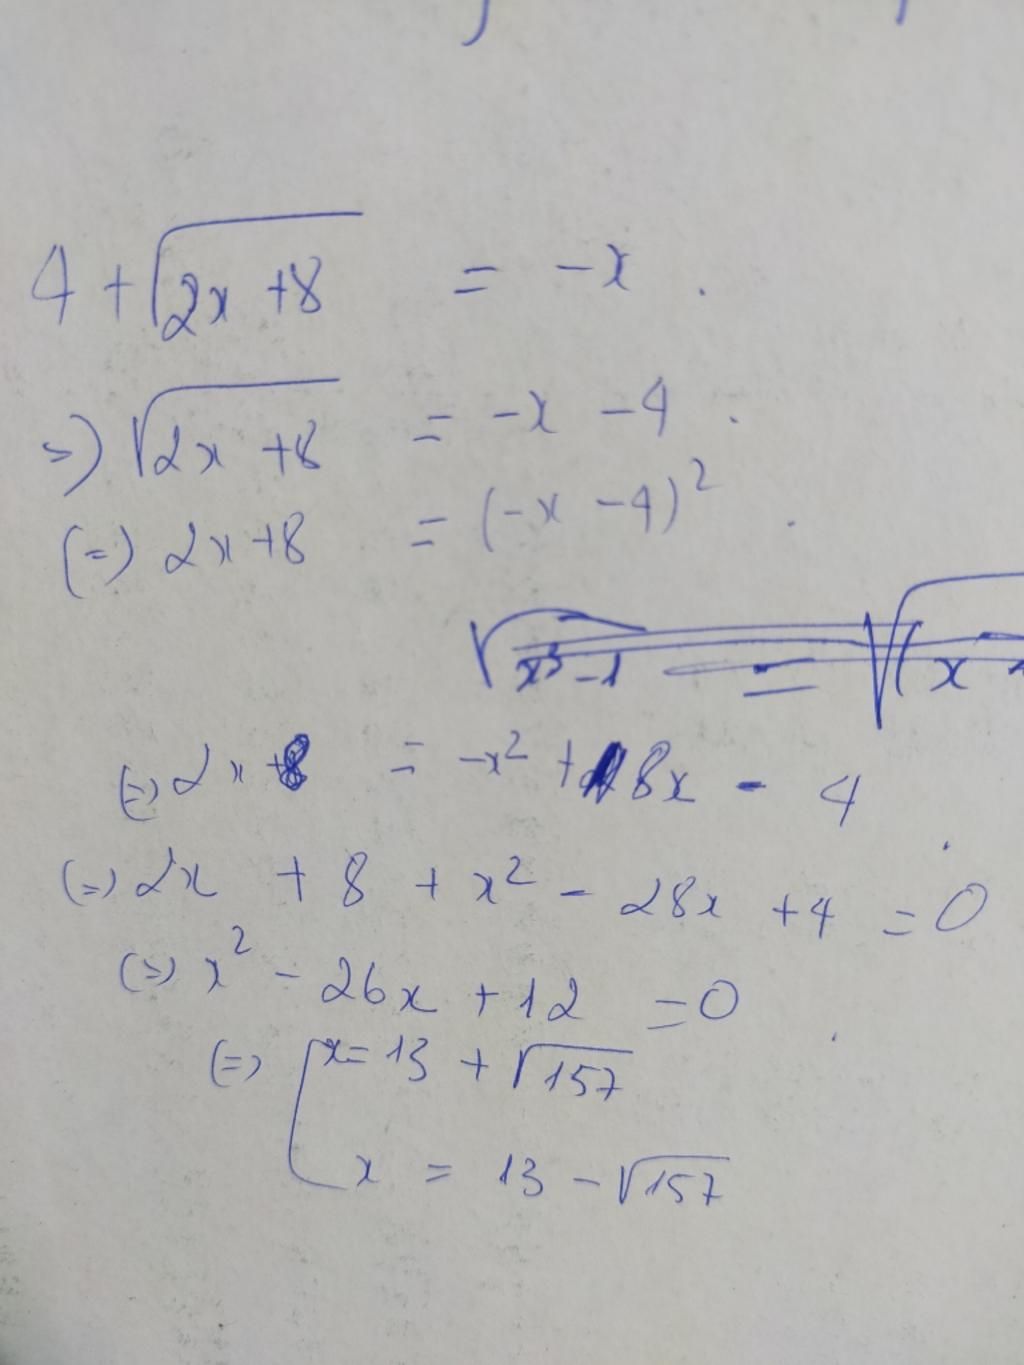 4 + √(2x + 8) = -x .
=) √(2x + 8) = -x - 4 .
(=) 2x + 8 = (-x - 4)² .
√(x³ - 1) = √(x
(=) 2x + 8 = -x² + 8x - 4
(=) 2x + 8 + x² - 28x + 4 = 0
(=) x² - 26x + 12 = 0
(=) [ x = 13 + √157
x = 13 - √157